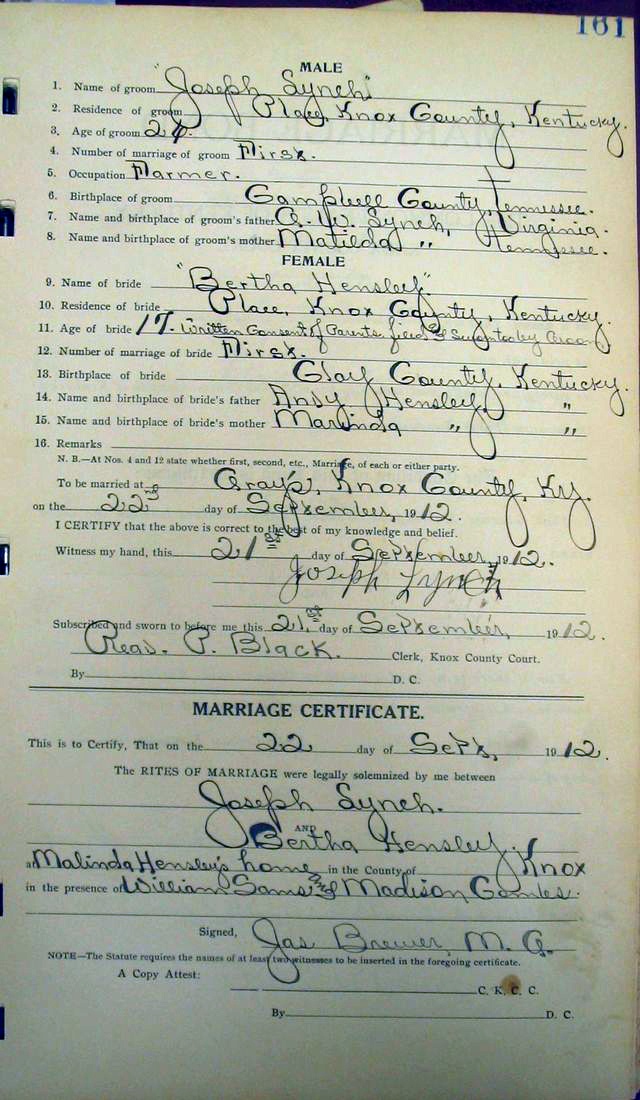 161
MALE
1. Name of groom "Joseph Lynch"
2. Residence of groom Place, Knox County, Kentucky.
3. Age of groom
4. Number of marriage of groom First.
5. Occupation Farmer.
6. Birthplace of groom Campbell County, Tennessee.
7. Name and birthplace of groom's father A. W. Lynch, Virginia.
8. Name and birthplace of groom's mother Matilda " Tennessee.
FEMALE
9. Name of bride "Bertha Hensley"
10. Residence of bride Place, Knox County, Kentucky.
11. Age of bride 17. Written Consent of Parents filed
12. Number of marriage of bride First.
13. Birthplace of bride Clay County, Kentucky.
14. Name and birthplace of bride's father Andy Hensley, "
15. Name and birthplace of bride's mother Malinda " "
16. Remarks
N. B.—At Nos. 4 and 12 state whether first, second, etc., Marriage, of each or either party.
To be married at Gray's, Knox County, Ky.
on the 22nd day of September, 1912.
I CERTIFY that the above is correct to the best of my knowledge and belief.
Witness my hand, this 21st day of September, 1912.
Joseph Lynch
Subscribed and sworn to before me this 21st day of September, 1912.
Read. P. Black. Clerk, Knox County Court.
By D. C.
MARRIAGE CERTIFICATE.
This is to Certify, That on the 22 day of Sept, 1912.
The RITES OF MARRIAGE were legally solemnized by me between
Joseph Lynch.
AND
Bertha Hensley.
at Malinda Hensley's home in the County of Knox
in the presence of William Sams and Madison Combs.
Signed, Jas Brewer, M. G.
NOTE—The Statute requires the names of at least two witnesses to be inserted in the foregoing certificate.
A Copy Attest:
C. K. C. C.
By D. C.